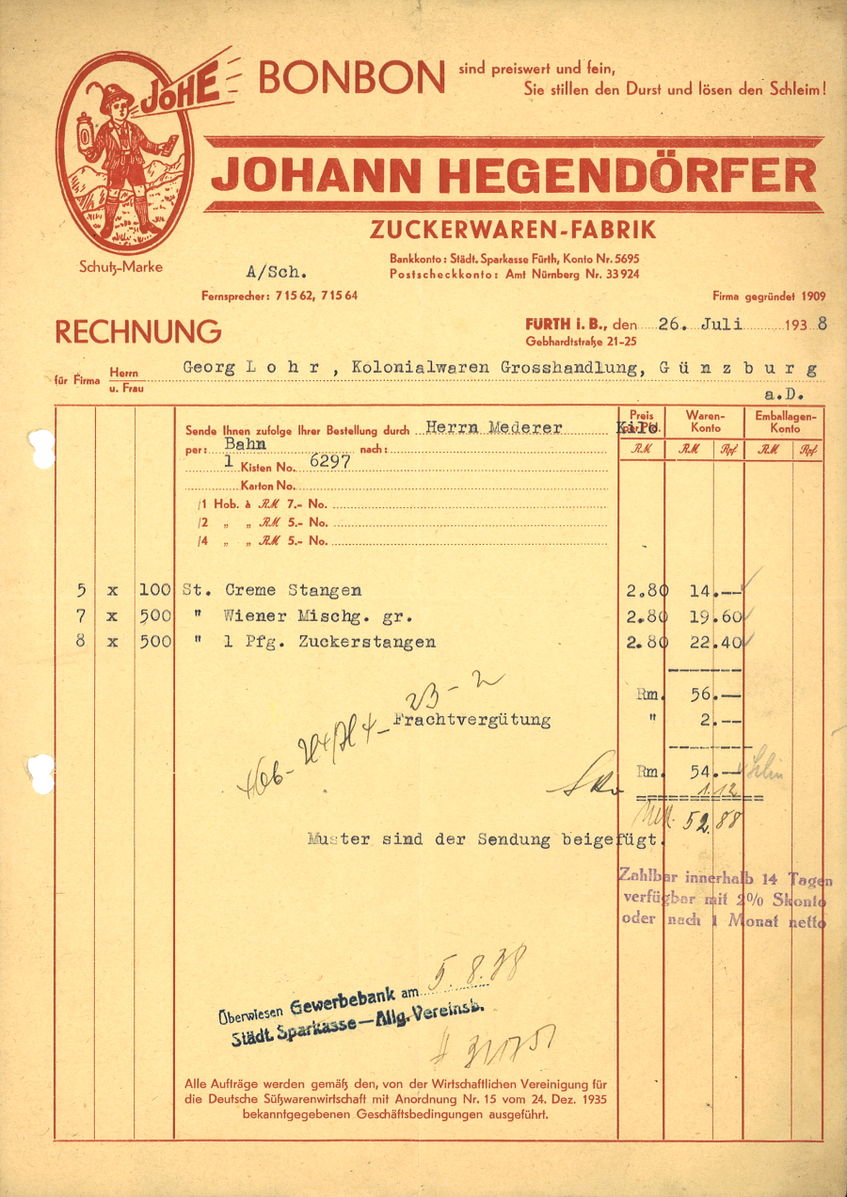 JOHE BONBON sind preiswert und fein,
Sie stillen den Durst und lösen den Schleim!
JOHANN HEGENDÖRFER
ZUCKERWAREN-FABRIK
Schutz-Marke
Bankkonto: Städt. Sparkasse Fürth, Konto Nr. 5695
A/Sch. Postscheckkonto: Amt Nürnberg Nr. 33924
Fernsprecher: 71562, 71564 Firma gegründet 1909
RECHNUNG FÜRTH i. B., den 26. Juli 1938
Gebhardtstraße 21-25
für Firma Herrn u. Frau Georg Lohr, Kolonialwaren Grosshandlung, Günzburg
a.D.
Sende Ihnen zufolge Ihrer Bestellung durch Herrn Mederer Kilo
Preis per Pfd. Waren-Konto Emballagen-Konto
per: Bahn nach: RM RM Rpf RM Rpf
1 Kisten No. 6297
Karton No.
/1 Hob. à RM 7.- No.
/2 „ „ RM 5.- No.
/4 „ „ RM 5.- No.
5 x 100 St. Creme Stangen 2.80 14.--
7 x 500 " Wiener Mischg. gr. 2.80 19.60
8 x 500 " 1 Pfg. Zuckerstangen 2.80 22.40
Rm. 56.--
23-2
Frachtvergütung " 2.--
Rm. 54.--
1.12
52.88
Muster sind der Sendung beigefügt.
Zahlbar innerhalb 14 Tagen
verfügbar mit 2% Skonto
oder nach 1 Monat netto
Überwiesen Gewerbebank am 5.8.38
Städt. Sparkasse—Allg. Vereinsb.
Alle Aufträge werden gemäß den, von der Wirtschaftlichen Vereinigung für
die Deutsche Süßwarenwirtschaft mit Anordnung Nr. 15 vom 24. Dez. 1935
bekanntgegebenen Geschäftsbedingungen ausgeführt.